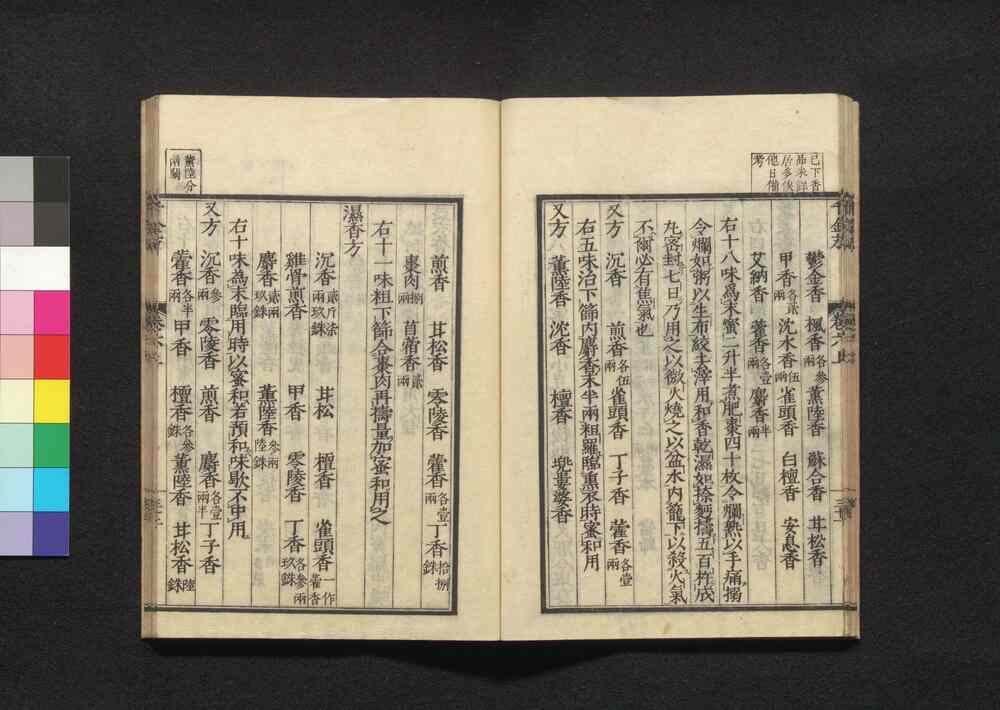 鬱金香 楓香各參 薰陸香 蘇合香 甘松香
甲香各貳兩 沈水香伍兩 雀頭香 白檀香 安息香
艾納香 藿香各壹兩 麝香半兩
右十八味爲末蜜二升半煮肥棗四十枚令爛熟以手痛搦
令爛如粥以生布絞去滓用和香乾濕如捺麨擣五百杵成
丸密封七日乃用之以微火燒之以盆水内籠下以殺火氣
不爾必有焦氣也
又方 沉香 煎香各伍兩 雀頭香 丁子香 藿香各壹兩
右五味治下篩内麝香末半兩粗羅臨熏衣時蜜和用
又方 薰陸香 沈香 檀香 兜婁婆香
煎香 甘松香 零陵香 藿香各壹兩 丁香拾捌銖
棗肉捌兩 苜蓿香貳兩
右十一味粗下篩合棗肉再擣量加蜜和用之
濕香方
沉香貳斤柒兩玖銖 甘松 檀香 雀頭香一作藿香
雞骨煎香 甲香 零陵香 丁香各參兩玖銖
麝香貳兩玖銖 薰陸香參兩陸銖
右十味爲末臨用時以蜜和若預和味歇不中用
又方 沉香參兩 零陵香 煎香 麝香各壹兩半 丁子香
藿香各半兩 甲香 檀香各參銖 薰陸香 甘松香陸銖